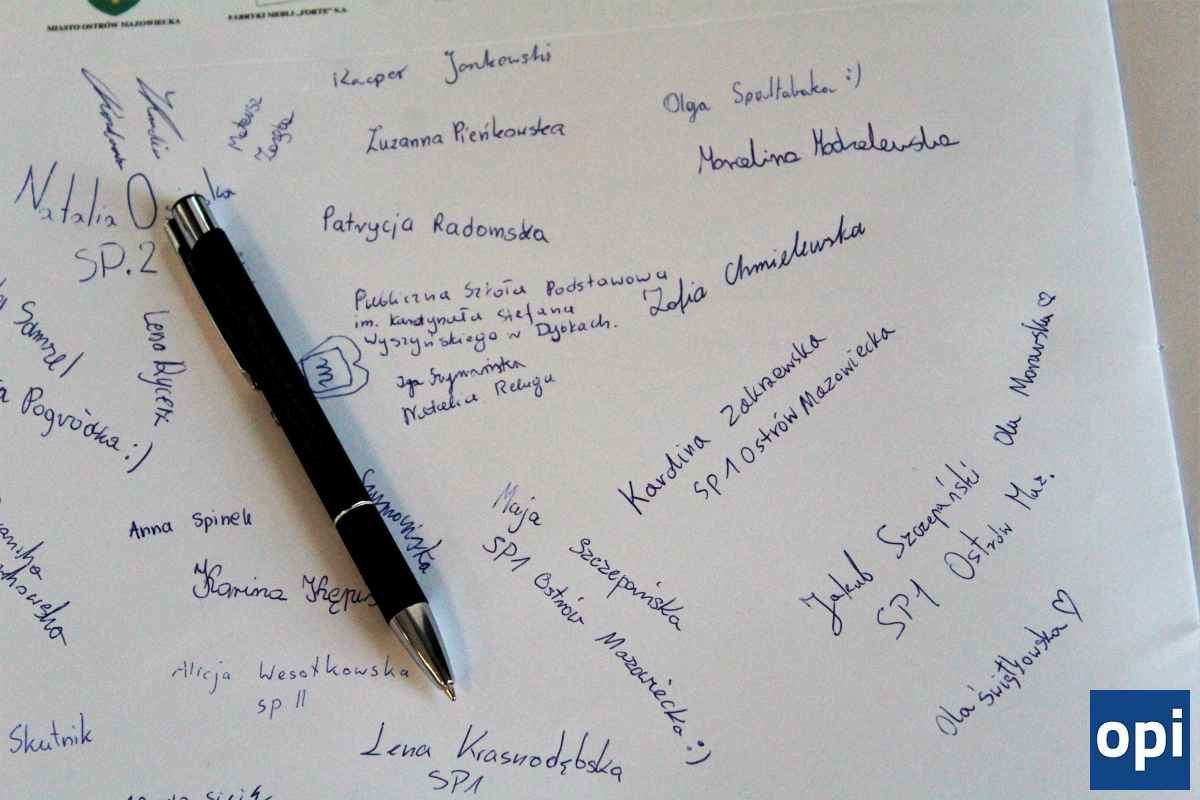 MIASTO OSTRÓW MAZOWIECKA
FABRYKI MEBLI „FORTE” S.A.
Kacper Jankowski
Olga Spałtabaka :)
Zuzanna Pieńkowska
Marcelina Modzelewska
Mateusz
Natalia
SP.2
Patrycja Radomska
Zofia Chmielewska
Publiczna Szkoła Podstawowa
im. Kardynała Stefana
Wyszyńskiego w Dybkach.
m
Iga Szymańska
Natalia Reluga
Samsel
Lena Rycerz
Pogródka :)
Karolina Zakrzewska
SP1 Ostrów Mazowiecka
Ola Morawska
Anna Spinek
Szymańska
Karina
Maja Szczepańska
SP1 Ostrów Mazowiecka :)
Jakub Szczepański
SP1 Ostrów Maz.
Ola Świątkowska
Alicja Wesołkowska
SP. II
Skutnik
Lena Krasnodębska
SP1
opi